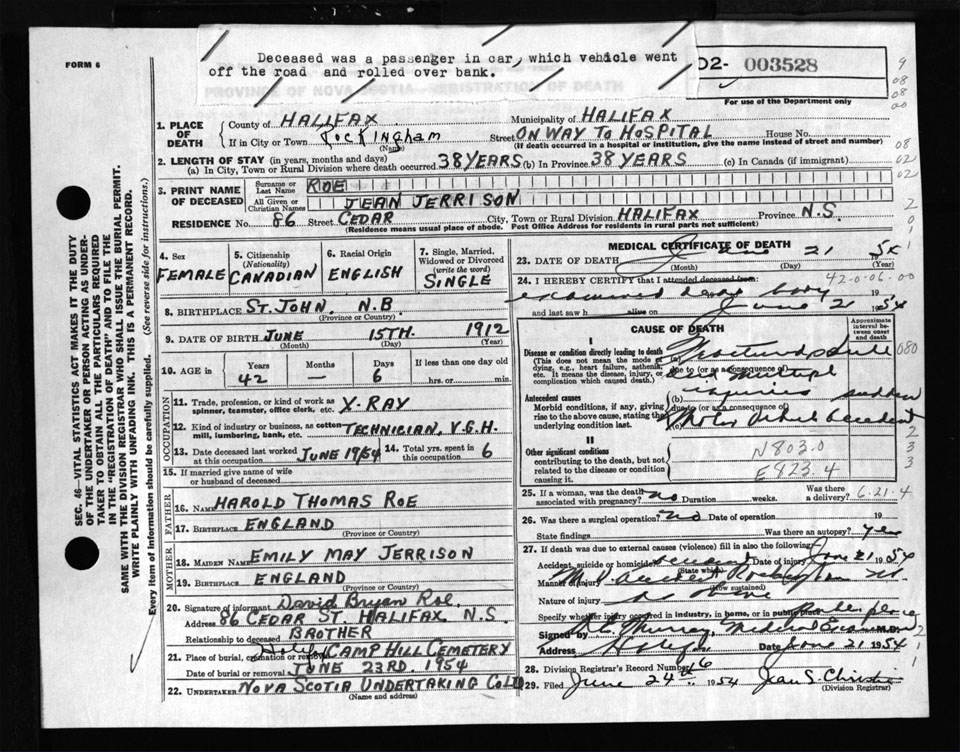 FORM 6
Deceased was a passenger in car, which vehicle went
off the road and rolled over bank.
PROVINCE OF NOVA SCOTIA REGISTRATION OF DEATH
D2- 003528
For use of the Department only
9
08
08
00
08
02
02
2
0
1
1
SEC. 46—VITAL STATISTICS ACT MAKES IT THE DUTY
OF THE UNDERTAKER OR PERSON ACTING AS UNDER-
TAKER TO OBTAIN ALL THE PARTICULARS REQUIRED
IN THE "REGISTRATION OF DEATH" AND TO FILE THE
SAME WITH THE DIVISION REGISTRAR WHO SHALL ISSUE THE BURIAL PERMIT.
WRITE PLAINLY WITH UNFADING INK. THIS IS A PERMANENT RECORD.
Every item of information should be carefully supplied. (See reverse side for instructions.)
1. PLACE OF DEATH County of HALIFAX Municipality of HALIFAX
If in City or Town Rockingham (Name) Street ON WAY TO HOSPITAL House No.
(If death occurred in a hospital or institution, give the name instead of street and number)
2. LENGTH OF STAY (in years, months and days)
(a) In City, Town or Rural Division where death occurred 38 YEARS (b) In Province 38 YEARS (c) In Canada (if immigrant)
3. PRINT NAME OF DECEASED Surname or Last Name ROE
All Given or Christian Names JEAN JERRISON
RESIDENCE No. 86 Street CEDAR City, Town or Rural Division HALIFAX Province N.S.
(Residence means usual place of abode. Post Office Address for residents in rural parts not sufficient)
4. Sex FEMALE
5. Citizenship (Nationality) CANADIAN
6. Racial Origin ENGLISH
7. Single, Married, Widowed or Divorced (write the word) SINGLE
8. BIRTHPLACE ST. JOHN N.B
(Province or Country)
9. DATE OF BIRTH JUNE 15TH. 1912
(Month) (Day) (Year)
10. AGE in Years 42 Months — Days 6 If less than one day old
hrs. or min.
OCCUPATION
11. Trade, profession or kind of work as spinner, teamster, office clerk, etc. X-RAY
12. Kind of industry or business, as cotton mill, lumbering, bank, etc. TECHNICIAN, V.G.H.
13. Date deceased last worked at this occupation JUNE 1954 14. Total yrs. spent in this occupation 6
15. If married give name of wife or husband of deceased
FATHER
16. NAME HAROLD THOMAS ROE
17. BIRTHPLACE ENGLAND
(Province or Country)
MOTHER
18. MAIDEN NAME EMILY MAY JERRISON
19. BIRTHPLACE ENGLAND
(Province or Country)
20. Signature of informant David Bryan Roe
Address 86 CEDAR ST. HALIFAX N.S.
Relationship to deceased BROTHER
21. Place of burial, cremation or removal Halifax CAMP HILL CEMETERY
Date of burial or removal JUNE 23RD. 1954
22. UNDERTAKER NOVA SCOTIA UNDERTAKING CO LTD
(Name and address)
MEDICAL CERTIFICATE OF DEATH
23. DATE OF DEATH June 21 54
(Month) (Day) (Year)
24. I HEREBY CERTIFY that I attended deceased from: 42-0-06-00
examined dead body 19
and last saw h alive on June 21 1954
CAUSE OF DEATH
Approximate interval between onset and death
I
Disease or condition directly leading to death (a) Fractured skull 080
(This does not mean the mode of dying, e.g., heart failure, asthenia, etc. It means the disease, injury, or complication which caused death.)
due to (or as a consequence of)
multiple
Antecedent causes (b) injuries sudden
Morbid conditions, if any, giving rise to the above cause, stating the underlying condition last.
due to (or as a consequence of)
(c) Motor vehicle accident
II
Other significant conditions
contributing to the death, but not related to the disease or condition causing it.
N803.0
E823.4
2
3
3
25. If a woman, was the death associated with pregnancy? no Duration weeks. Was there a delivery? 6-21-4
26. Was there a surgical operation? no Date of operation 19
State findings Was there an autopsy? yes
27. If death was due to external causes (violence) fill in also the following:
Accident, suicide or homicide? accident Date of injury June 21 1954
(State which)
Manner of injury accident
(How sustained)
Nature of injury
Specify whether injury occurred in industry, in home, or in public place Public place
Signed by Murray, Medical Examiner M.D.
Address Halifax Date June 21 1954
28. Division Registrar's Record Number 46
29. Filed June 24th 1954 Jean S. Christie
(Division Registrar)